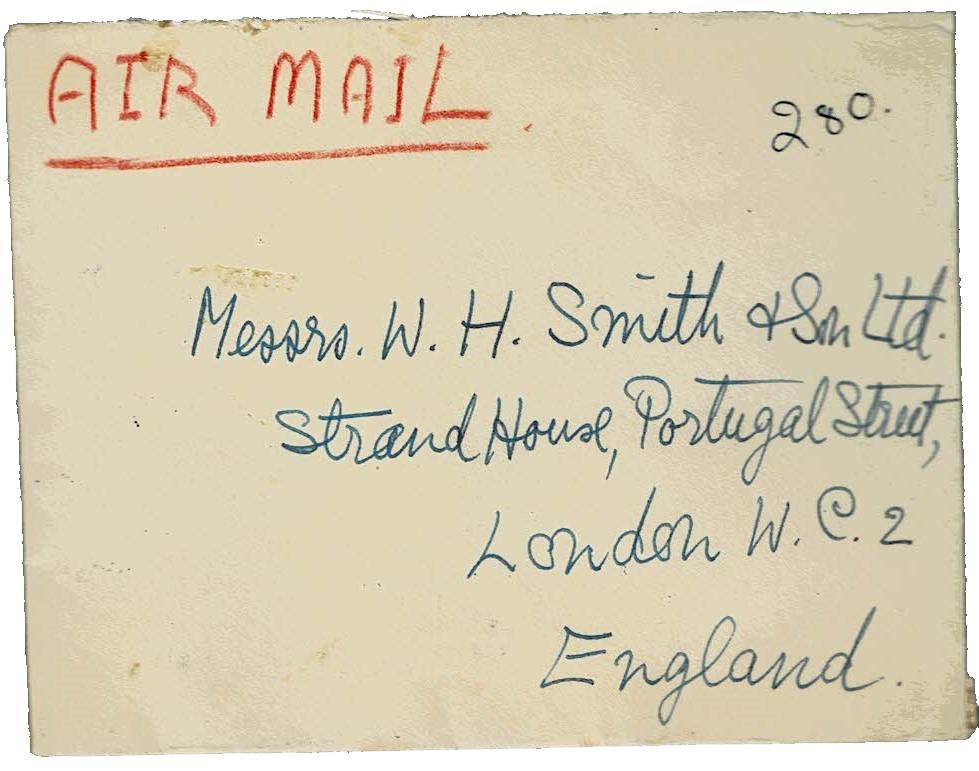 AIR MAIL.
280.
Messrs. W. H. Smith & Son Ltd.
Strand House, Portugal Street,
London W. C. 2
England.